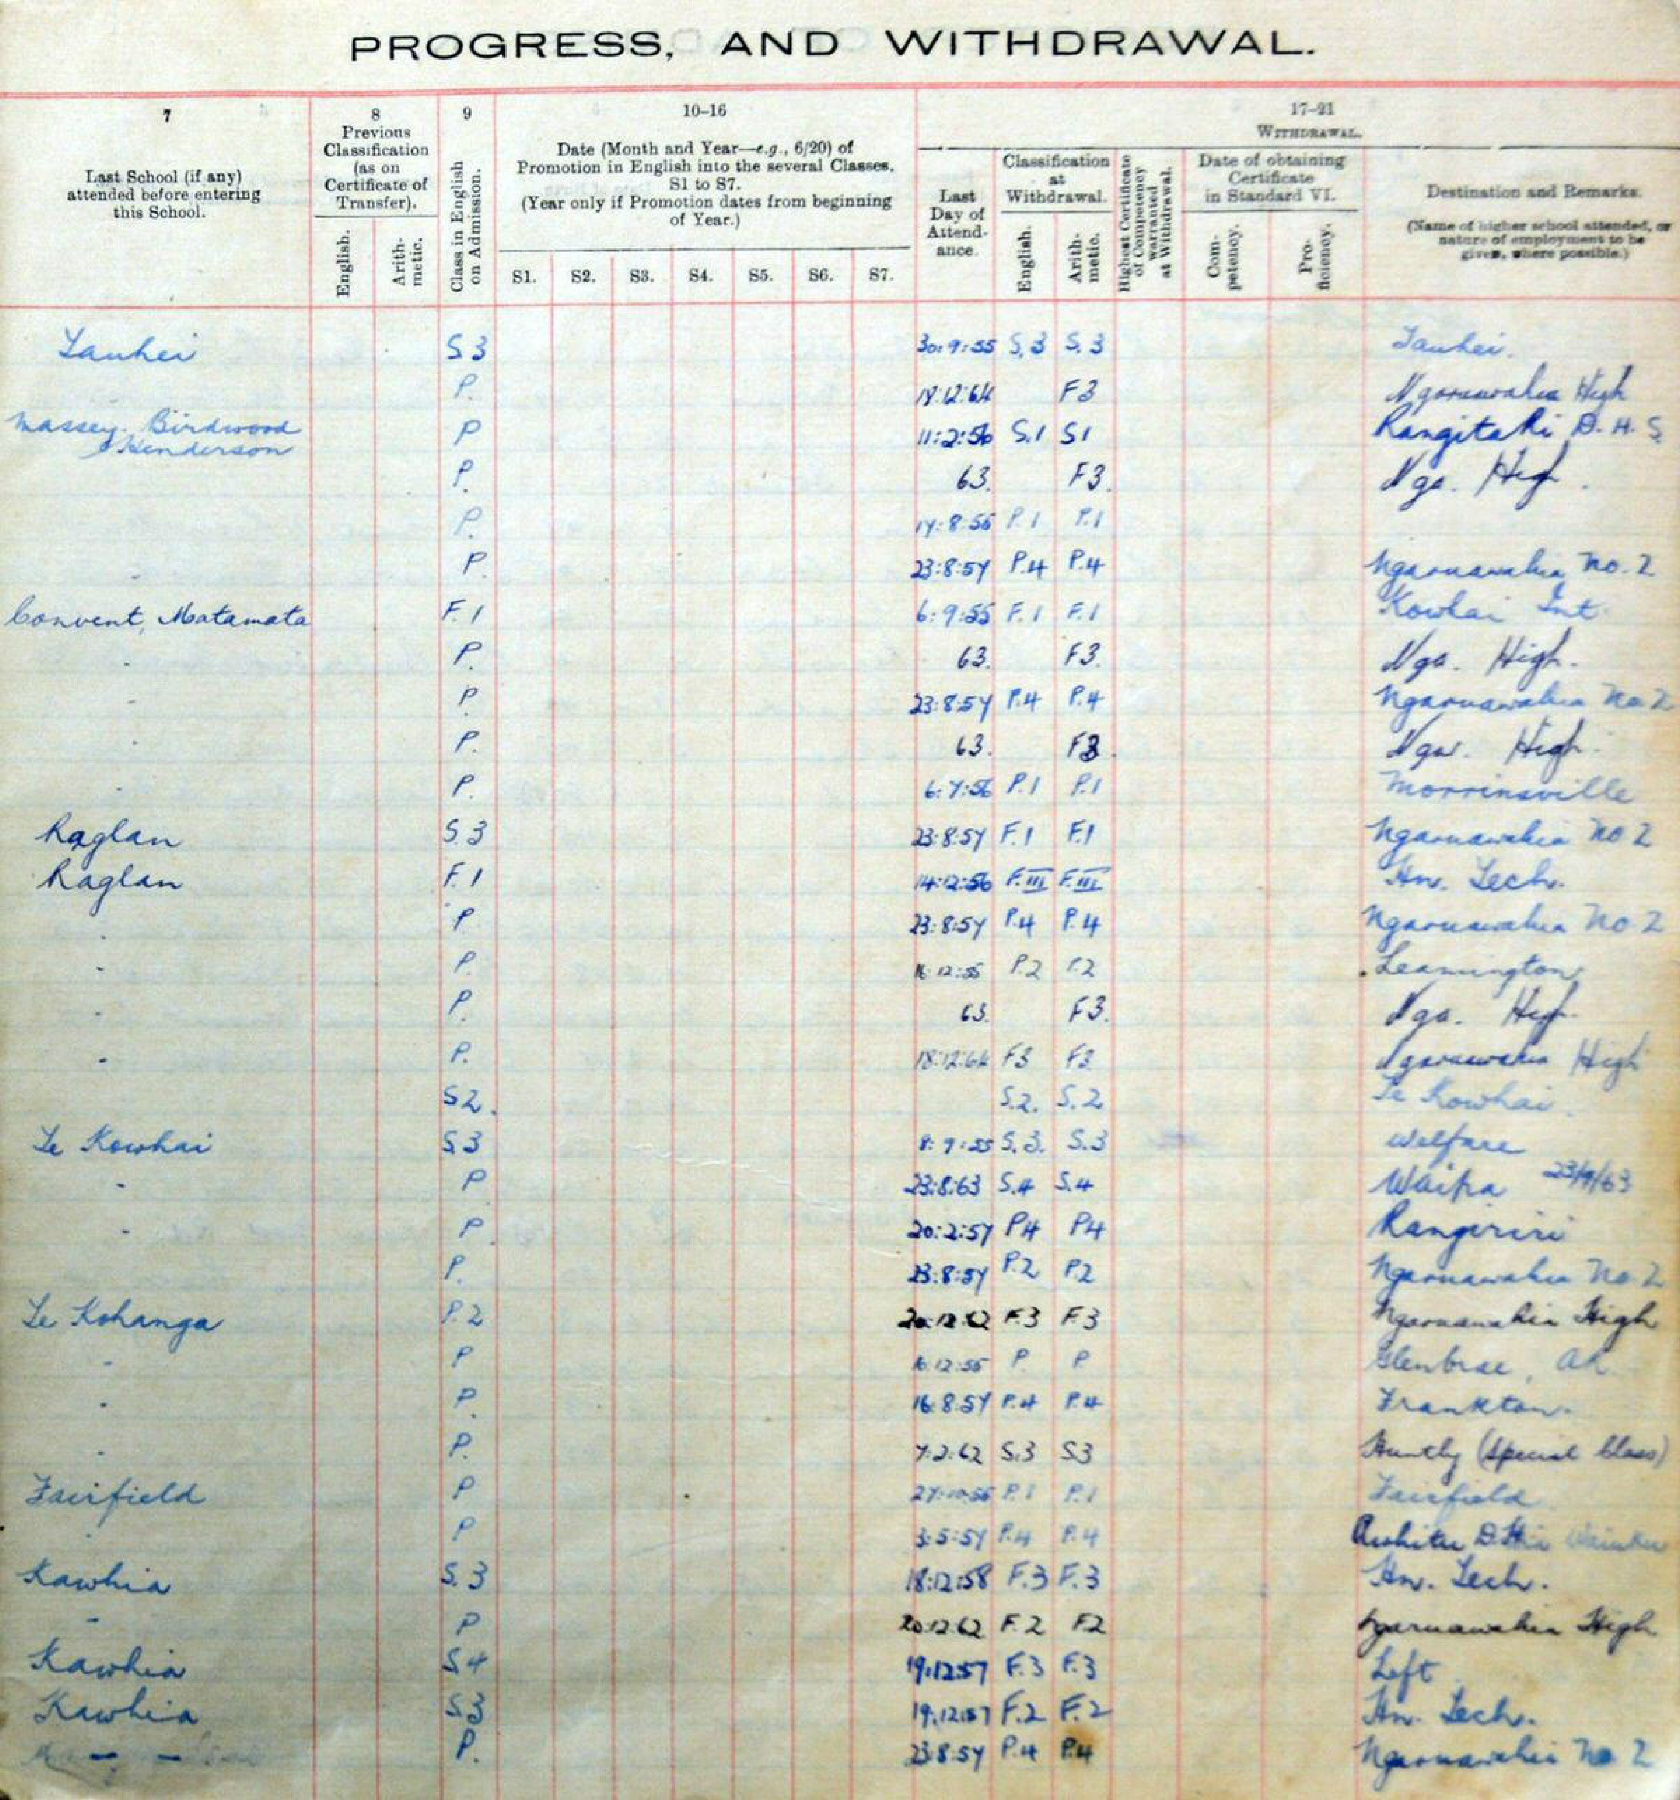 PROGRESS, AND WITHDRAWAL.
7 8 9 10-16 17-21
Last School (if any) attended before entering this School.
Previous Classification (as on Certificate of Transfer).
English. Arithmetic.
Class in English on Admission.
Date (Month and Year—e.g., 6/20) of Promotion in English into the several Classes, S1 to S7.
(Year only if Promotion dates from beginning of Year.)
S1. S2. S3. S4. S5. S6. S7.
WITHDRAWAL.
Last Day of Attendance.
Classification at Withdrawal.
English. Arithmetic.
Highest Certificate of Competency Warranted at Withdrawal.
Date of obtaining Certificate in Standard VI.
Competency. Proficiency.
Destination and Remarks.
(Name of higher school attended, or nature of employment to be given, where possible.)
Tauhei S3 30:9:55 S.3 S.3 Tauhei.
P. F3 Ngaruawahia High
Massey. Birdwood P 11:2:56 S.1 S1 Rangitaki D.H.S
Henderson
P. 63. F3. Nga. High.
P. 17:8:55 P.1 P.1
P. 23:8:57 P.4 P.4 Ngaruawahia No. 2
Convent, Matamata F.1 6:9:55 F.1 F.1 Kowhai Int.
- P. 63. F3. Nga. High.
- P. 23:8:57 P.4 P.4 Ngaruawahia No 2
- P. 63. F3. Nga. High.
- P. 6:7:56 P.1 P.1 Morrinsville
Raglan S3 23:8:57 F.1 F.1 Ngaruawahia No 2
Raglan F.1 14:12:56 F.III F.III Hn. Tech.
- P. 23:8:57 P.4 P.4 Ngaruawahia No 2
- P. 16:12:55 P.2 P.2 Leamington
- P. 63. F3. Nga. High.
- P. 18:12:64 F3 F3 Ngaruawahia High
S2. S.2. S.2 Te Kowhai.
Te Kowhai S.3 8:9:55 S.3. S.3 Welfare
- P 23:8:63 S.4 S.4 Waipa
- P. 20:2:57 P4 P4 Rangiriri
P. 23:8:57 P.2 P.2 Ngaruawahia No. 2
Te Kohanga P.2 F.3 F.3 Ngaruawahia High
- P 16:12:55 P P Glenbrae, Ak.
- P. 16:8:57 P.4 P.4 Frankton.
- P. 7:2:62 S.3 S3 Huntly (Special Class)
Fairfield P 27:10:55 P.1 P.1 Fairfield
- P 3:5:57 P.4 P.4
Kawhia S.3 18:12:58 F.3 F.3 Hn. Tech.
- P 20:12:62 F.2 F2 Ngaruawahia High
Kawhia S4 19:12:57 F.3 F.3 Left
Kawhia S3 19:12:57 F.2 F.2 Hn. Tech.
P. 23:8:57 P.4 P.4 Ngaruawahia No 2